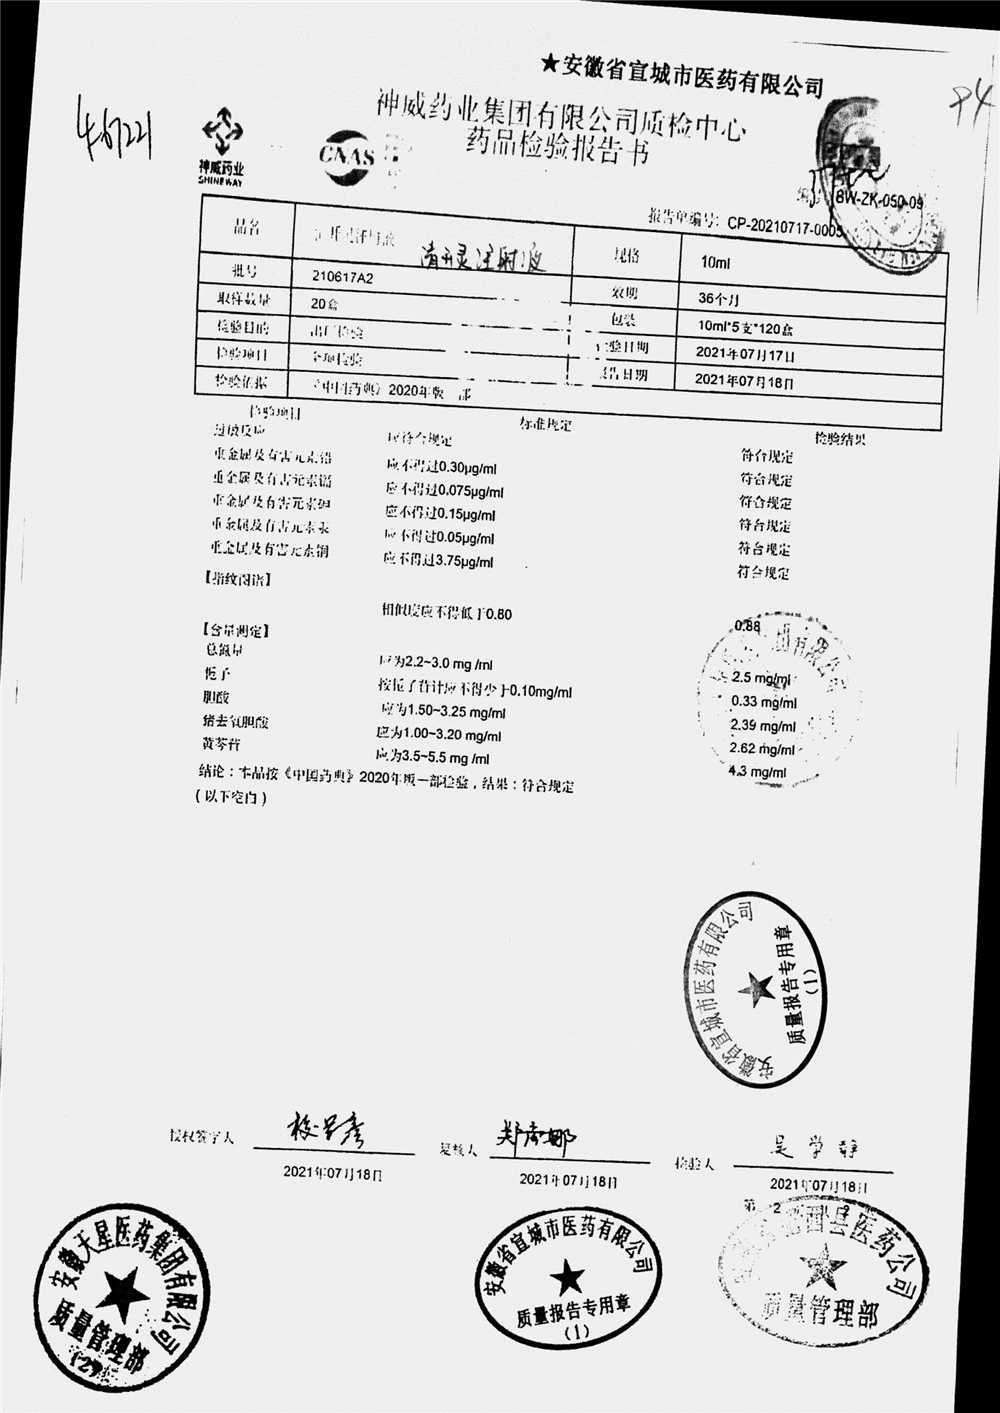 ★安徽省宣城市医药有限公司
神威药业集团有限公司质检中心
药品检验报告书
467221
94
神威药业
SHINEWAY
CNAS
BW-ZK-050-09
报告单编号: CP-20210717-0005
品名 清开灵注射液 规格 10ml
批号 210617A2 效期 36个月
取样数量 20盒 包装 10ml*5支*120盒
检验目的 出厂检验 检验日期 2021年07月17日
检验项目 全项检验 报告日期 2021年07月18日
检验依据 《中国药典》2020年版一部
检验项目 标准规定 检验结果
过敏反应 应符合规定 符合规定
重金属及有害元素铅 应不得过0.30μg/ml 符合规定
重金属及有害元素镉 应不得过0.075μg/ml 符合规定
重金属及有害元素砷 应不得过0.15μg/ml 符合规定
重金属及有害元素汞 应不得过0.05μg/ml 符合规定
重金属及有害元素铜 应不得过3.75μg/ml 符合规定
【指纹图谱】
相似度应不得低于0.80 0.88
【含量测定】
总氮量 应为2.2~3.0 mg /ml 2.5 mg/ml
栀子 按栀子苷计应不得少于0.10mg/ml 0.33 mg/ml
胆酸 应为1.50~3.25 mg/ml 2.39 mg/ml
猪去氧胆酸 应为1.00~3.20 mg/ml 2.62 mg/ml
黄芩苷 应为3.5~5.5 mg /ml 4.3 mg/ml
结论：本品按《中国药典》2020年版一部检验，结果：符合规定
(以下空白)
安徽省宣城市医药有限公司
质量报告专用章
(1)
授权签字人 复核人 检验人 吴学静
2021年07月18日 2021年07月18日 2021年07月18日
第 2
安徽天星医药集团有限公司
质量管理部
(2)
安徽省宣城市医药有限公司
质量报告专用章
(1)
肥西县医药公司
质量管理部